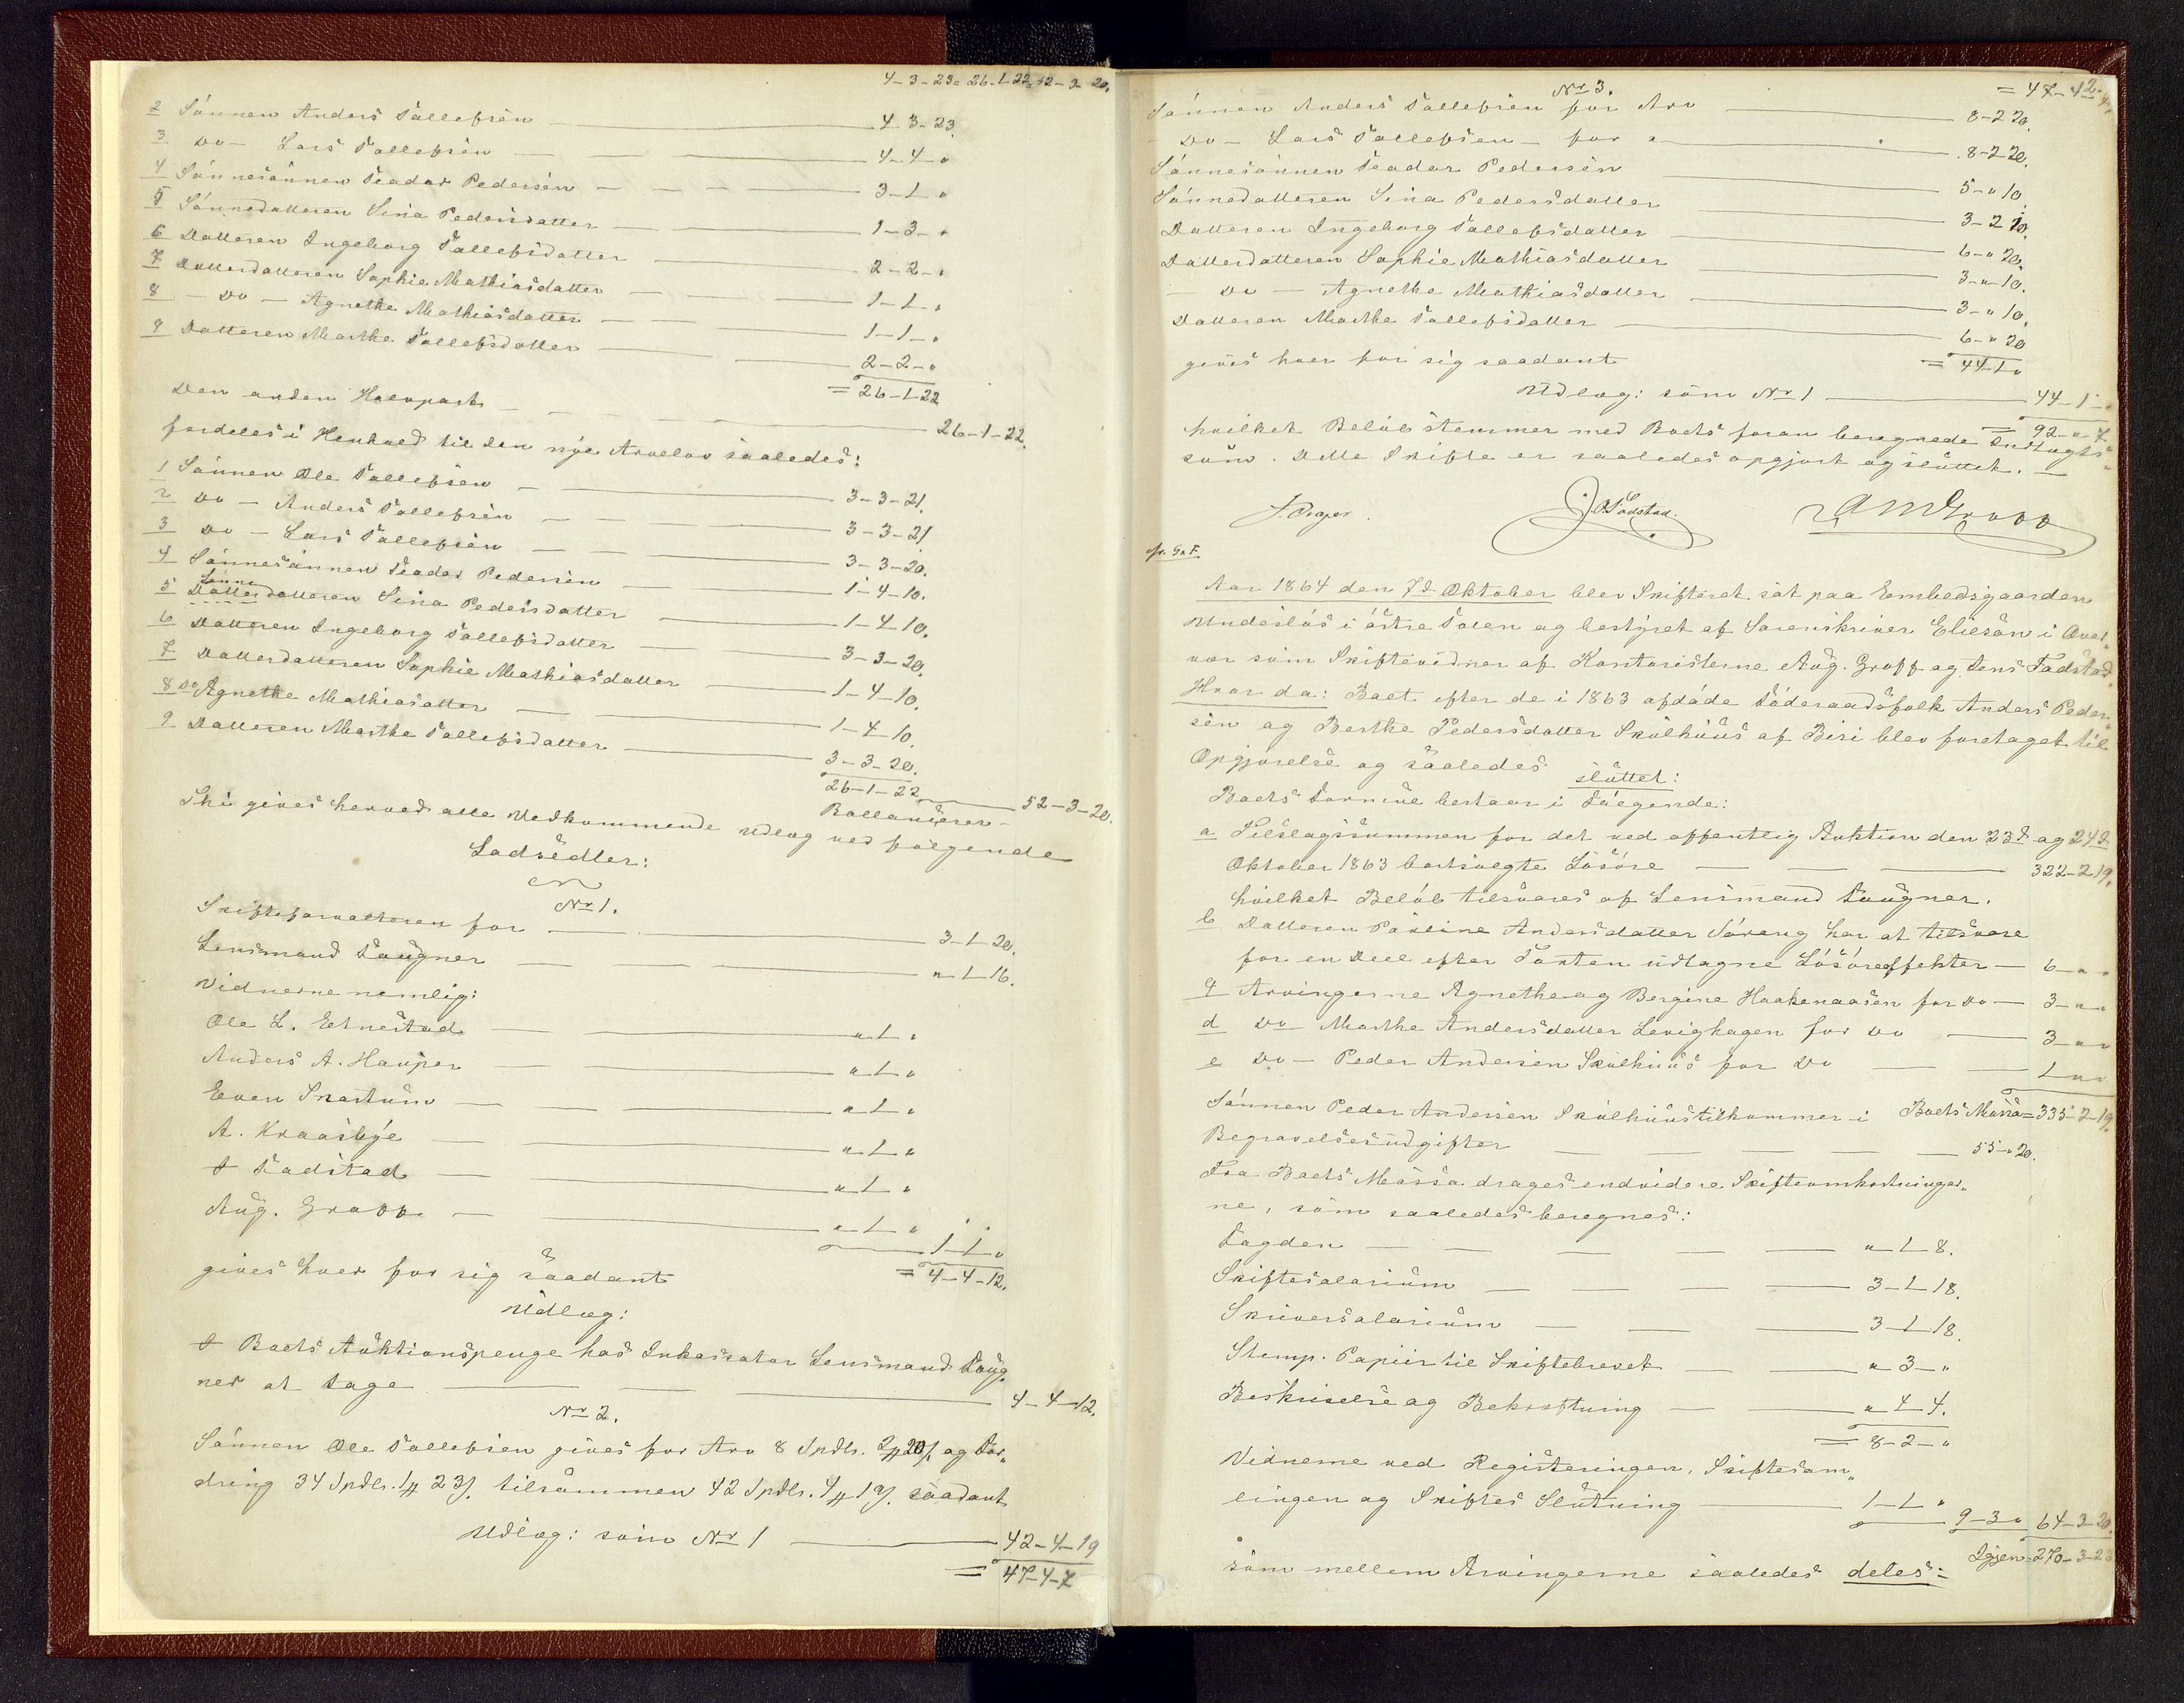 4-3-23= 26-1-22= 52-3-20.
2 Sönnen Anders Tollefsen — 4-3-23.
3 Do — Lars Tollefsen — 4-4-"
4 Sönnesönnen Teador Pedersen — 3-1-"
5 Sönnedatteren Sina Pedersdatter — 1-3-"
6 Datteren Ingeborg Tollefsdatter — 2-2-"
7 Datterdatteren Sophie Mathiasdatter — 1-1-"
8 — Do — Agnethe Mathiasdatter — 1-1-"
9 Datteren Marthe Tollefsdatter — 2-2-"
= 26-1-22
Den anden Halvpart — 26-1-22.
fordeles i Henhold til den nye Arvelov saaledes:
1 Sönnen Ole Tollefsen — 3-3-21.
2 Do — Anders Tollefsen — 3-3-21
3 Do — Lars Tollefsen — 3-3-20.
4 Sönnesönnen Teador Pedersen — 1-4-10.
Sönne
5 Datterdatteren Sina Pedersdatter — 1-4-10.
6 Datteren Ingeborg Tollefsdatter — 3-3-20.
7 Datterdatteren Sophie Mathiasdatter — 1-4-10.
8 Do Agnethe Mathiasatter — 1-4-10.
9 Datteren Marthe Tollefsdatter — 3-3-20.
26-1-22 — 52-3-20.
Ballancerer
Thi gives herved alle Vedkommende Udlæg ved følgende
Lodsedler:
No 1.
Skifteforvalteren for — 3-1-20.
Lensmand Faugner — "-1-16.
Vidnerne nemlig:
Ole L. — "-1-"
Anders A. — "-1-"
Even Snartum — "-1-"
A. Kraabye — "-1-"
J Fadstad — "-1-"
Aug. Gropp — "-1-" 1-1-"
gives hver for sig saadant = 4-4-12.
Udlæg:
I Boets Auktionspenge hos Inkassator Lensmand Faug-
ner at tage — 4-4-12.
No 2.
Sönnen Ole Tollefsen gives for Arv 8 Spdlr. 2 20 og For-
dring 34 Spdlr. 1 23 tilsammen 42 Spdlr. 4 19 saadant
Udlæg: som No 1 — 42-4-19
= 47-4-7
No 3. = 47-4-
Sönnen Anders Tollefsen for Arv — 8-2 20.
— Do — Lars Tollefsen — for " — 8-2 20.
Sönnesönnen Teador Pedersen — 5-" 10.
Sönnedatteren Sina Pedersdatter — 3-2 10.
Datteren Ingeborg Tollefsdatter — 6-" 20.
Datterdatteren Sophie Mathiasdatter — 3-" 10.
— Do — Agnethe Mathiasdatter — 3-" 10.
Datteren Marthe Tollefsdatter — 6-" 20
gives hver for sig saadant = 44 1 "
Udlæg: som No 1 — 44-1-"
= 92-"-7
hvilket Belöb stemmer med Boets foran beregnede Indtægts-
sum. Dette Skifte er saaledes opgjort og sluttet.
J. Fadstad. A M Gropp
Aar 1864 den 7d Oktober blev Skifteret sat paa Embedsgaarden
Undeslös i östre Toten og bestyret af Sorenskriver Eliesön i Over-
vær som Skiftevidner af Kontoristerne Aug. Gropp og Jens Fadstad.
Hvor da: Boet efter de i 1863 afdöde Föderaadsfolk Anders Peder-
sen og Berthe Pedersdatter Skolhuus af Biri blev foretaget til
Opgjørelse og saaledes sluttet:
Boets Formue bestaar i Fölgende:
a Tilslagssummen for det ved offentlig Auktion den 23d og 24d
Oktober 1863 bortsolgte Lösöre — 322-2-19.
hvilket Belöb tilsvares af Lensmand Faugner.
b Datteren Pauline Andersdatter Söreng har at tilsvare
for en Deel efter Taxten udtagne Lösöreeffekter — 6-"-"
Arvingerne Agnethe og Bergine Haakenaasen for Do — 3-"-"
d Do Marthe Andersdatter Levighagen for Do — 3-"-"
e Do — Peder Andersen Skolhuus for Do — 1-"-"
Boets Massa = 335-2-19.
Sönnen Peder Andersen Skolhuus tilkommer i
Begravelsesudgifter — 55-"-20.
Fra Boets Massa drages endvidere Skifteomkostninger-
ne, som saaledes beregnes:
Fogden — "-1-8.
Skiftesalarium — 3-1-18.
Skriversalarium — 3-1-18.
Stemp. Papiir til Skiftebrevet — "-3-"
Beskrivelse og Bekræftning — "-4-4.
= 8-2-"
Vidnerne ved Registeringen, Skiftesam-
lingen og Skiftes Slutning — 1-1-"
9-3-" 64-3-20.
Igjen = 270-3-23
som mellem Arvingerne saaledes deles: